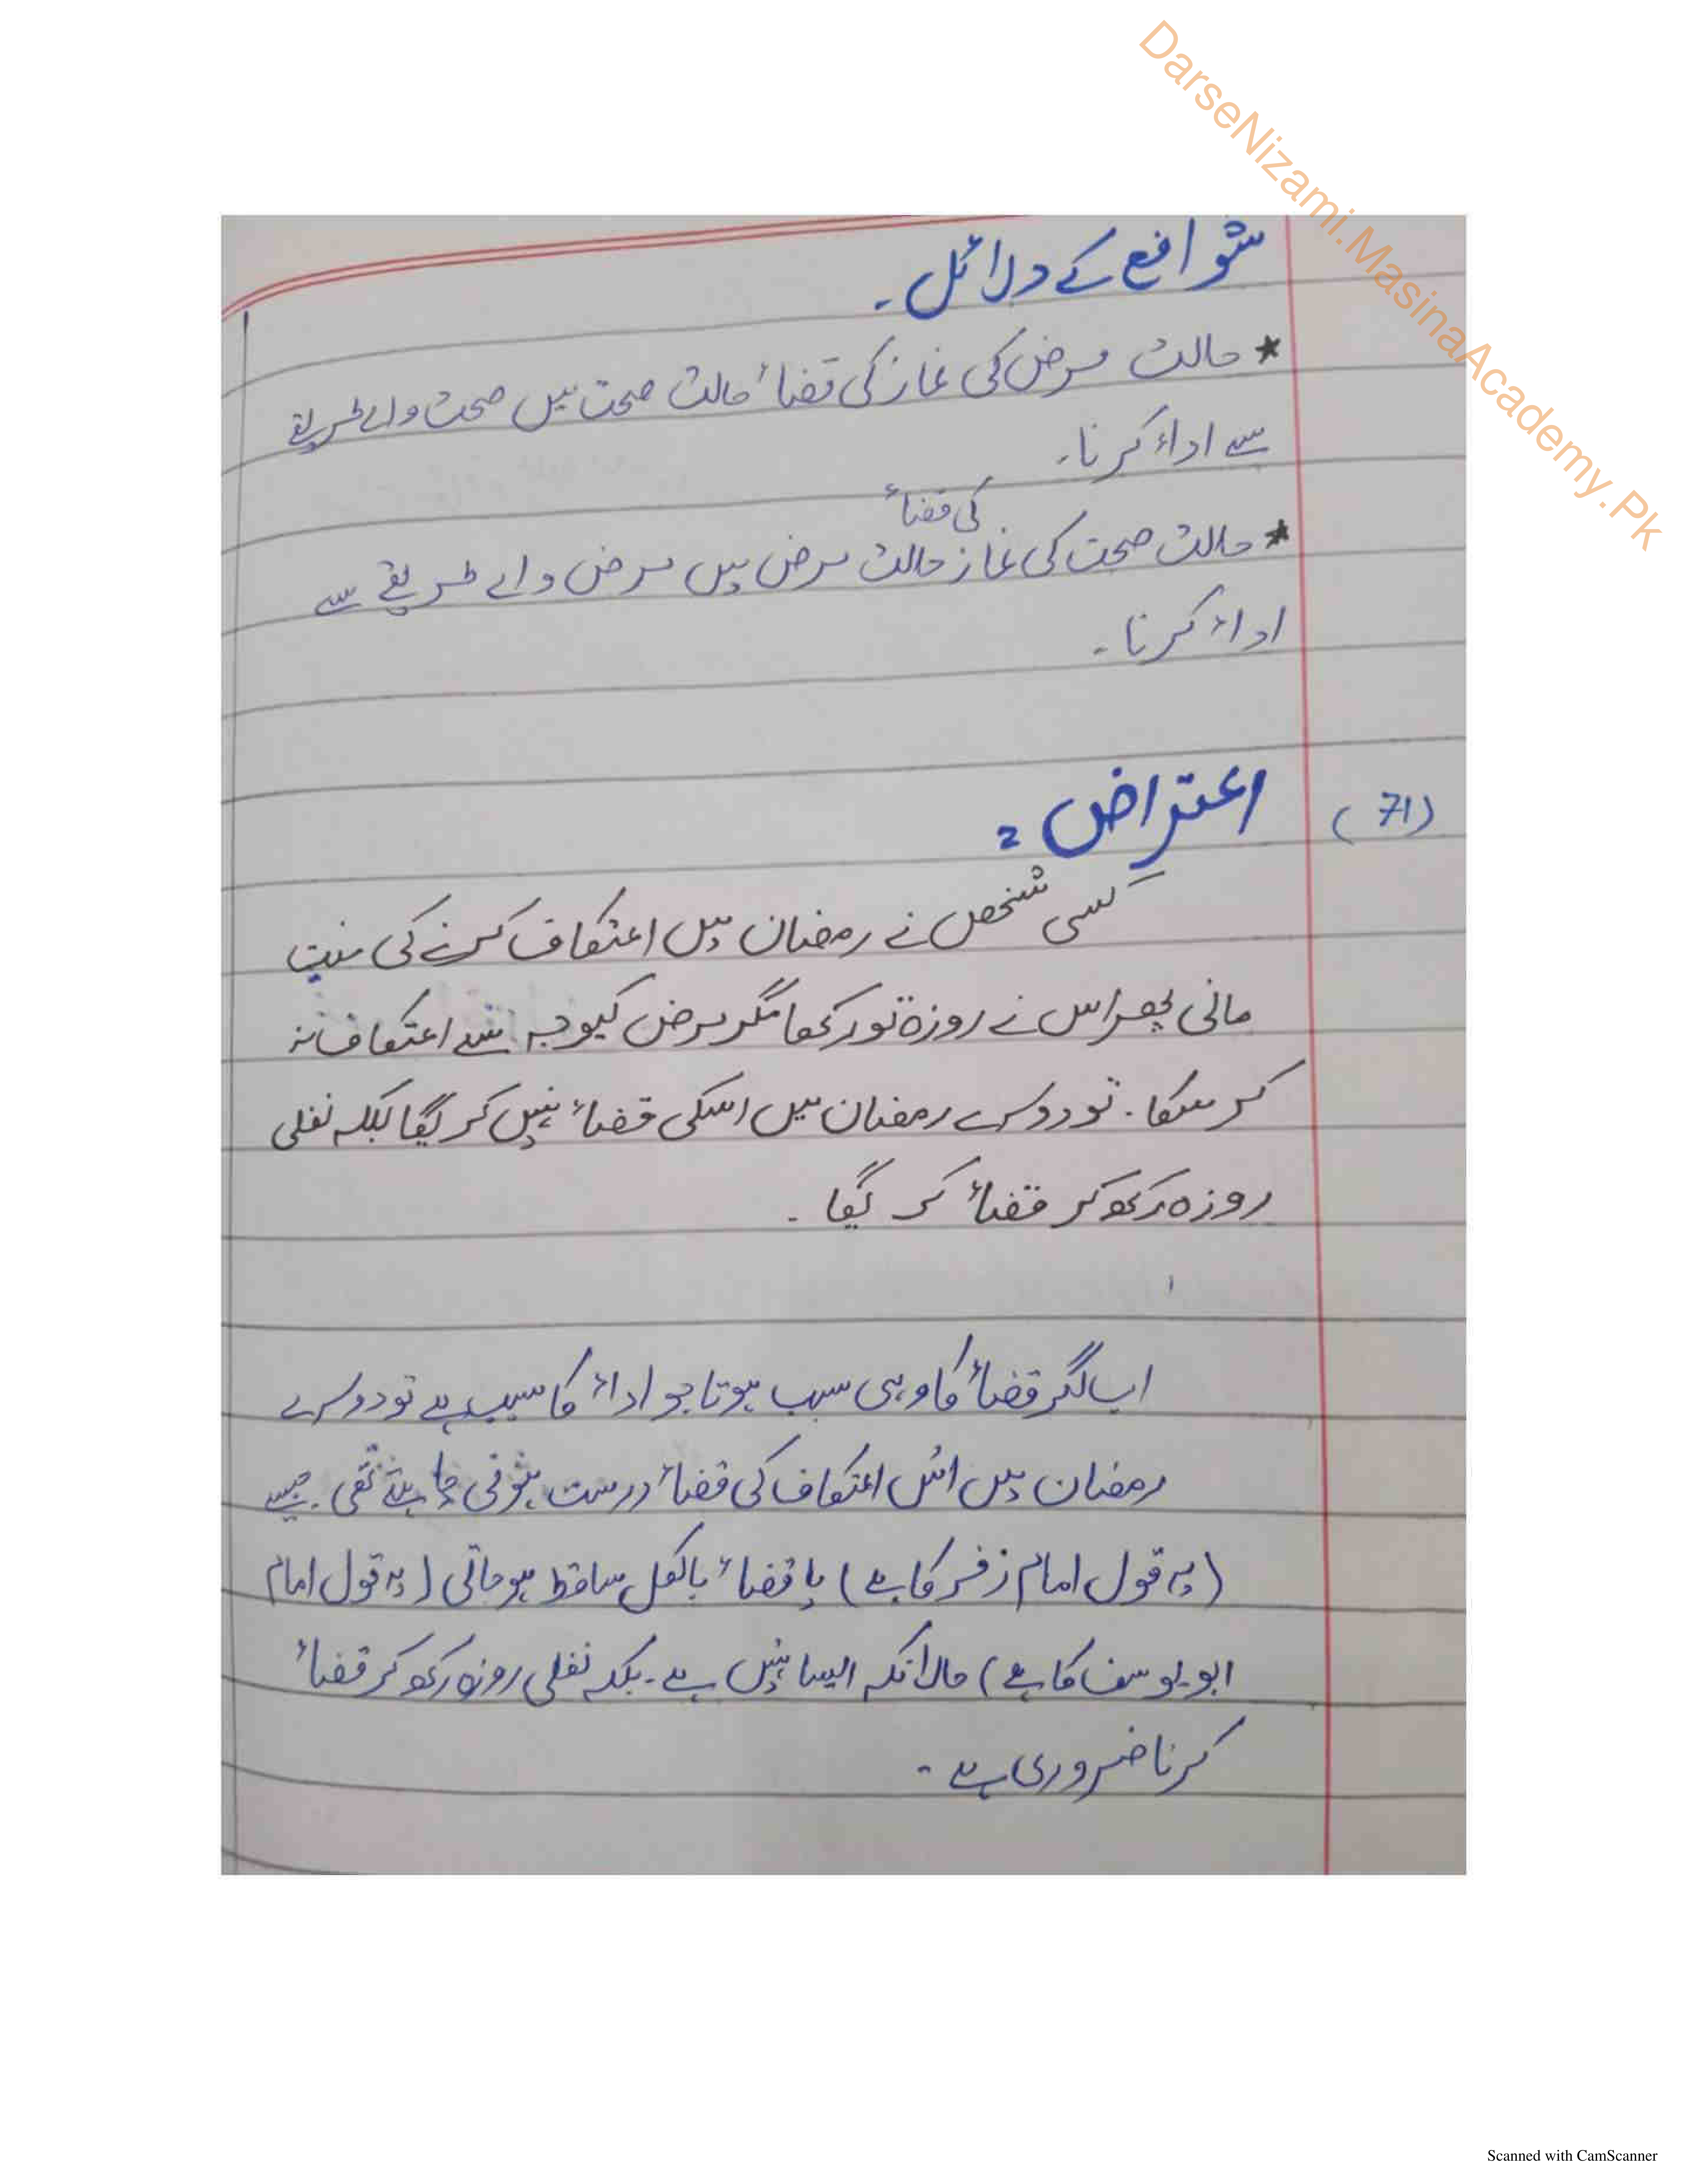 DarseNizami.MasinaAcademy.Pk
شوافع کے دلائل ۔
★ حالت مرض کی نماز کی قضاءٔ حالت صحت میں صحت والے طریقے
سے اداء کرنا۔
کی قضاءٔ
★ حالت صحت کی نماز حالت مرض میں مرض والے طریقے سے
اداء کرنا ۔
(71) اعتراض :
کسی شخص نے رمضان میں اعتکاف کرنے کی منت
مانی پھر اس نے روزہ تو رکھا مگر مرض کیوجہ سے اعتکاف نہ
کر سکا ۔ تو دوسرے رمضان میں اسکی قضاءٔ نہیں کریگا بلکہ نفلی
روزہ رکھ کر قضاءٔ کریگا ۔
اب اگر قضاءٔ کا وہی سبب ہوتا جو اداء کا سبب ہے تو دوسرے
رمضان میں اُس اعتکاف کی قضاءٔ درست ہونی چاہئے تھی ۔ جیسے
(یہ قول امام زفر کا ہے) یا قضاءٔ بالکل ساقط ہو جاتی (یہ قول امام
ابو یوسف کا ہے) حالانکہ ایسا نہیں ہے ۔ بلکہ نفلی روزہ رکھ کر قضاءٔ
کرنا ضروری ہے ۔
Scanned with CamScanner